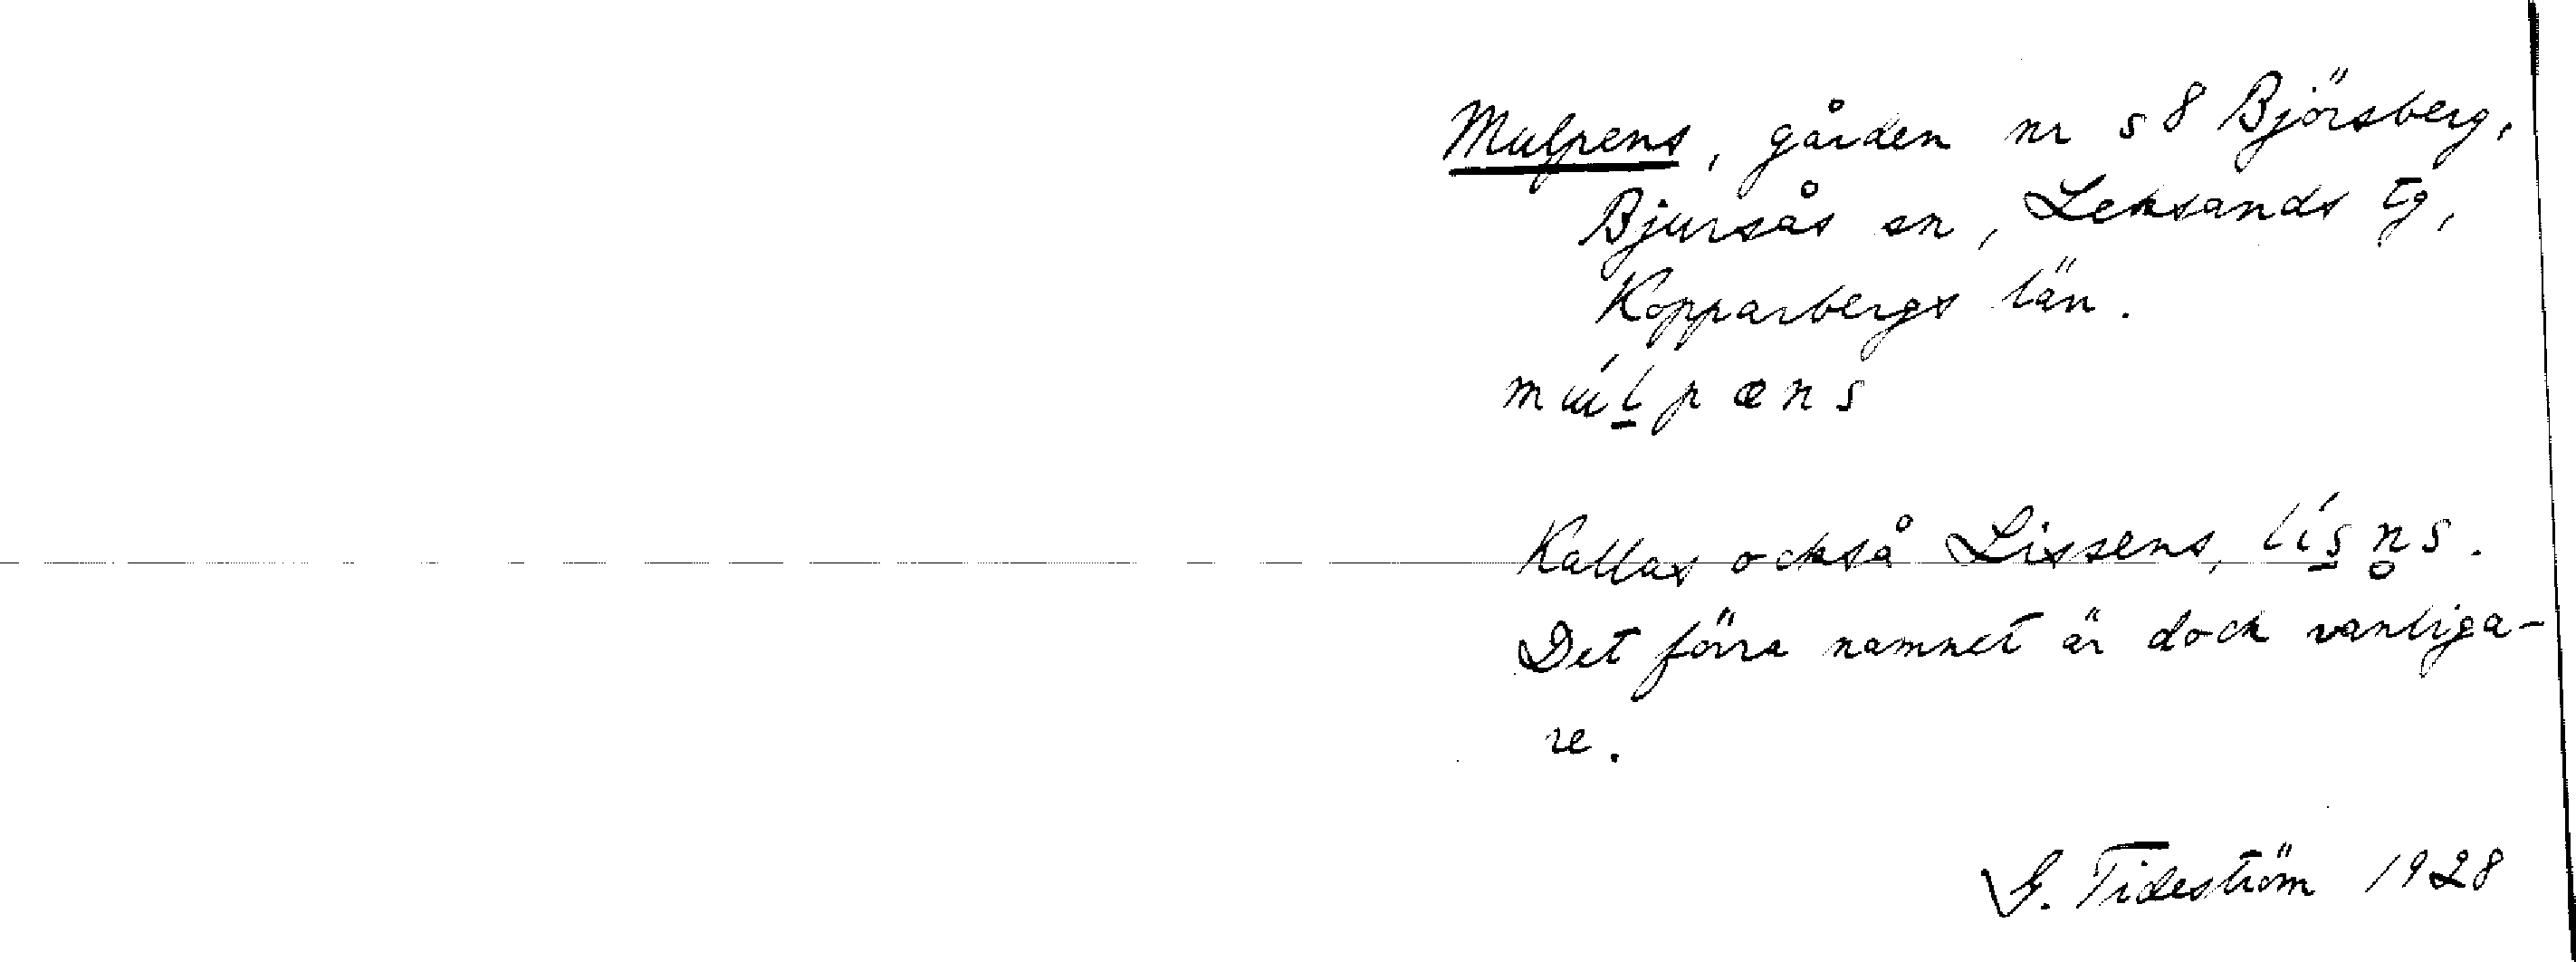 Mulpens, gården nr s 8 Björsberg,
Bjursås sn, Leksands tg,
Kopparbergs län.
Kallas också Lissens,
Det förra namnet är dock vanliga-
re.
G. Tideström 1928